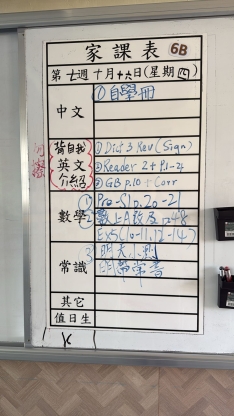 家課表 6B
第七週十月十六日(星期四)
中文
①自學冊
背自我
英文
介紹
① Dict 3 Rev (Sign)
② Reader 2 + P.1-4
③ GB p.10 + Corr
數學
1. Pre-S1 p.20-21
2.
P.48
Ex5(10-11, 12-14)
常識
明天
帶常書
其它
值日生